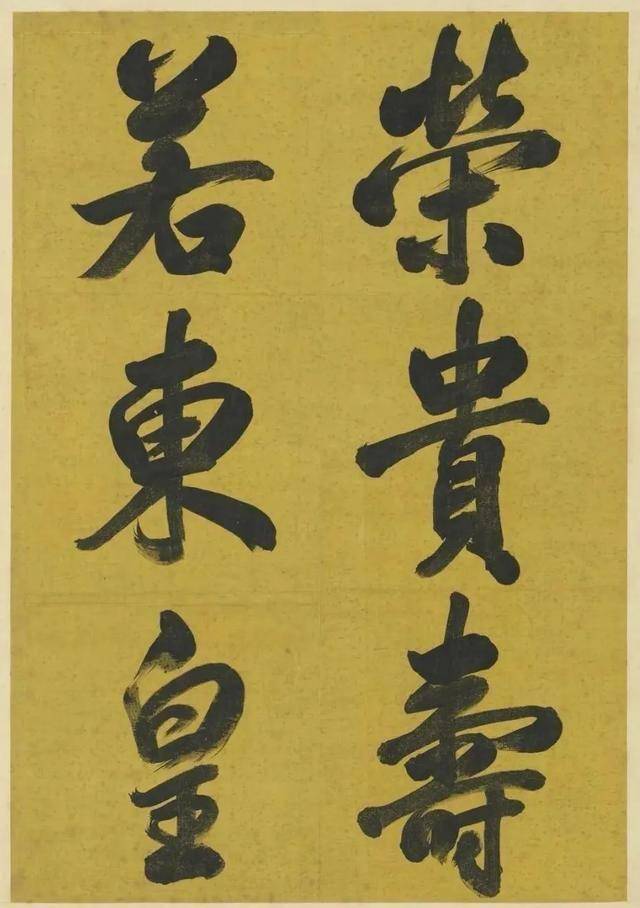 榮貴壽
若東皇